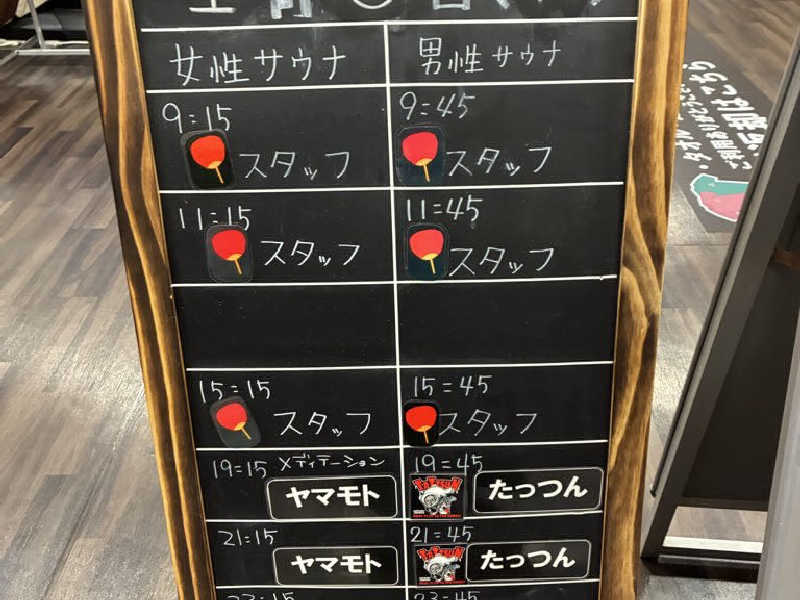 女性サウナ 男性サウナ
9:15 9:45
スタッフ スタッフ
11:15 11:45
スタッフ スタッフ
15:15 15:45
スタッフ スタッフ
19:15 メディテーション 19:45
ヤマモト たっつん
21:15 21:45
ヤマモト たっつん
23:15 23:45